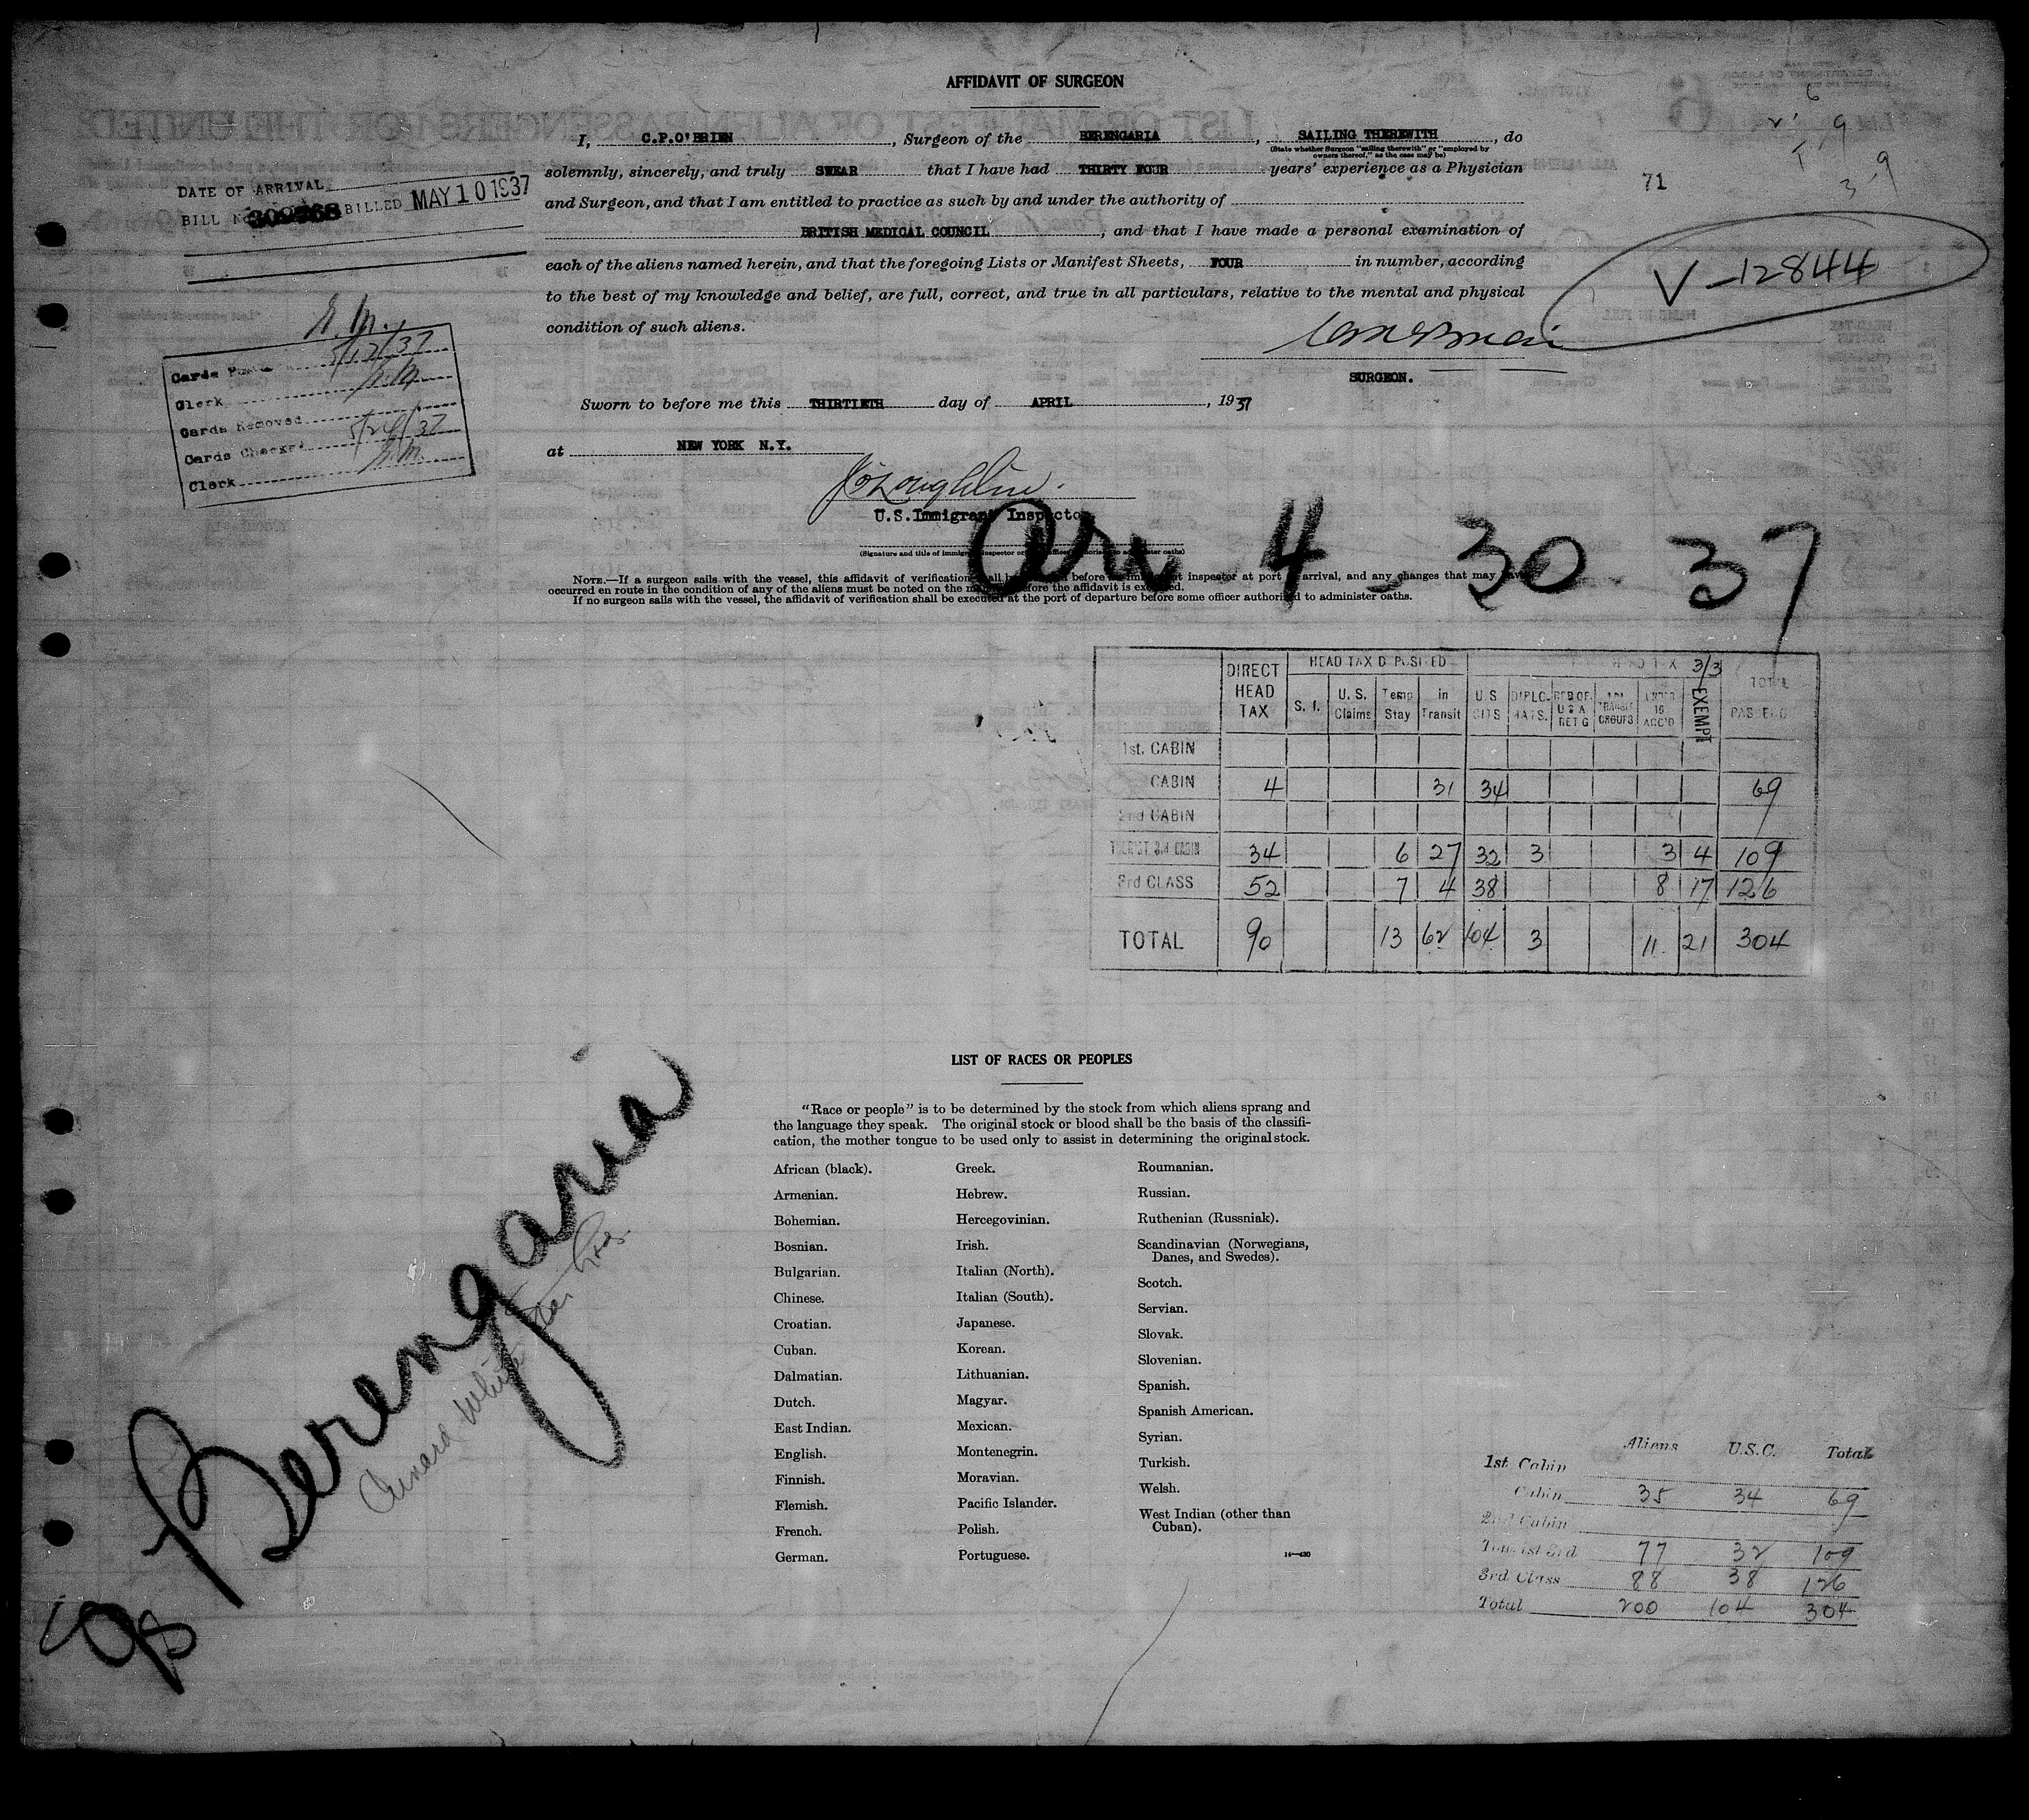 AFFIDAVIT OF SURGEON
I, C.P.O'BRIEN, Surgeon of the BERENGARIA, SAILING THEREWITH, do
(State whether Surgeon "sailing therewith" or "employed by
owners thereof," as the case may be)
solemnly, sincerely, and truly SWEAR that I have had THIRTY FOUR years' experience as a Physician
and Surgeon, and that I am entitled to practice as such by and under the authority of
BRITISH MEDICAL COUNCIL, and that I have made a personal examination of
each of the aliens named herein, and that the foregoing Lists or Manifest Sheets, FOUR in number, according
to the best of my knowledge and belief, are full, correct, and true in all particulars, relative to the mental and physical
condition of such aliens.
SURGEON.
Sworn to before me this THIRTIETH day of APRIL, 1937
at NEW YORK N.Y.
U.S. Immigrant Inspector
(Signature and title of immigrant inspector or other officer authorized to administer oaths)
NOTE.—If a surgeon sails with the vessel, this affidavit of verification shall be before inspector at port of arrival, and any changes that may have
occurred en route in the condition of any of the aliens must be noted on the manifest before the affidavit is executed.
If no surgeon sails with the vessel, the affidavit of verification shall be executed at the port of departure before some officer authorized to administer oaths.
Arr 4 30 37
71
V-12844
DATE OF ARRIVAL
BILL No BILLED MAY 10 1937
5/12/37
Clerk
Cards Removed
Cards Checked 5/24/37
Clerk
DIRECT HEAD TAX | HEAD TAX DEPOSITED | 3/3 | TOTAL
S. I. | U.S. Claims | Temp Stay | in Transit | U S CITS | DIPLOMATS. | EXEMPT
1st. CABIN
CABIN 4 31 34 69
2nd CABIN
TOURIST 3rd CABIN 34 6 27 32 3 3 4 109
3rd CLASS 52 7 4 38 8 17 126
TOTAL 90 13 62 104 3 11 21 304
LIST OF RACES OR PEOPLES
"Race or people" is to be determined by the stock from which aliens sprang and
the language they speak. The original stock or blood shall be the basis of the classifi-
cation, the mother tongue to be used only to assist in determining the original stock.
African (black).
Armenian.
Bohemian.
Bosnian.
Bulgarian.
Chinese.
Croatian.
Cuban.
Dalmatian.
Dutch.
East Indian.
English.
Finnish.
Flemish.
French.
German.
Greek.
Hebrew.
Hercegovinian.
Irish.
Italian (North).
Italian (South).
Japanese.
Korean.
Lithuanian.
Magyar.
Mexican.
Montenegrin.
Moravian.
Pacific Islander.
Polish.
Portuguese.
Roumanian.
Russian.
Ruthenian (Russniak).
Scandinavian (Norwegians,
Danes, and Swedes).
Scotch.
Servian.
Slovak.
Slovenian.
Spanish.
Spanish American.
Syrian.
Turkish.
Welsh.
West Indian (other than
Cuban).
14—430
Berengaria
Cunard White Star
Aliens U.S.C. Total
1st. Cabin
Cabin 35 34 69
2nd Cabin
Tourist 3rd 77 32 109
3rd Class 88 38 126
Total 200 104 304